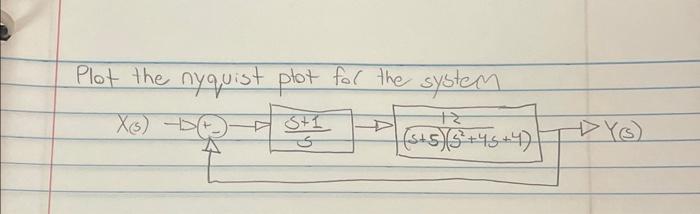 Plot the nyquist plot for the system
X(s) + - S+1 / S 12 / (S+5)(S²+4S+4) Y(S)